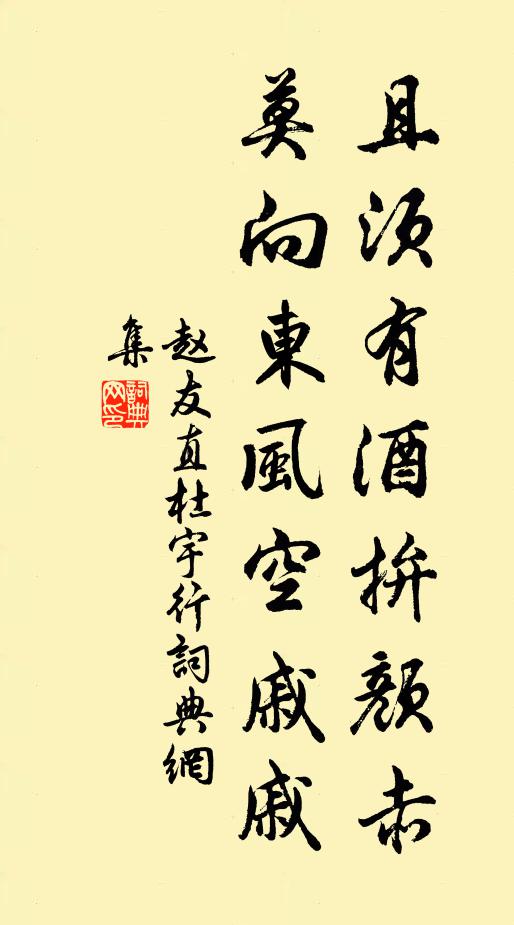 且須有酒拚顏赤
莫向東風空戚戚
赵友直杜宇行詞典網
集
詞典
网印